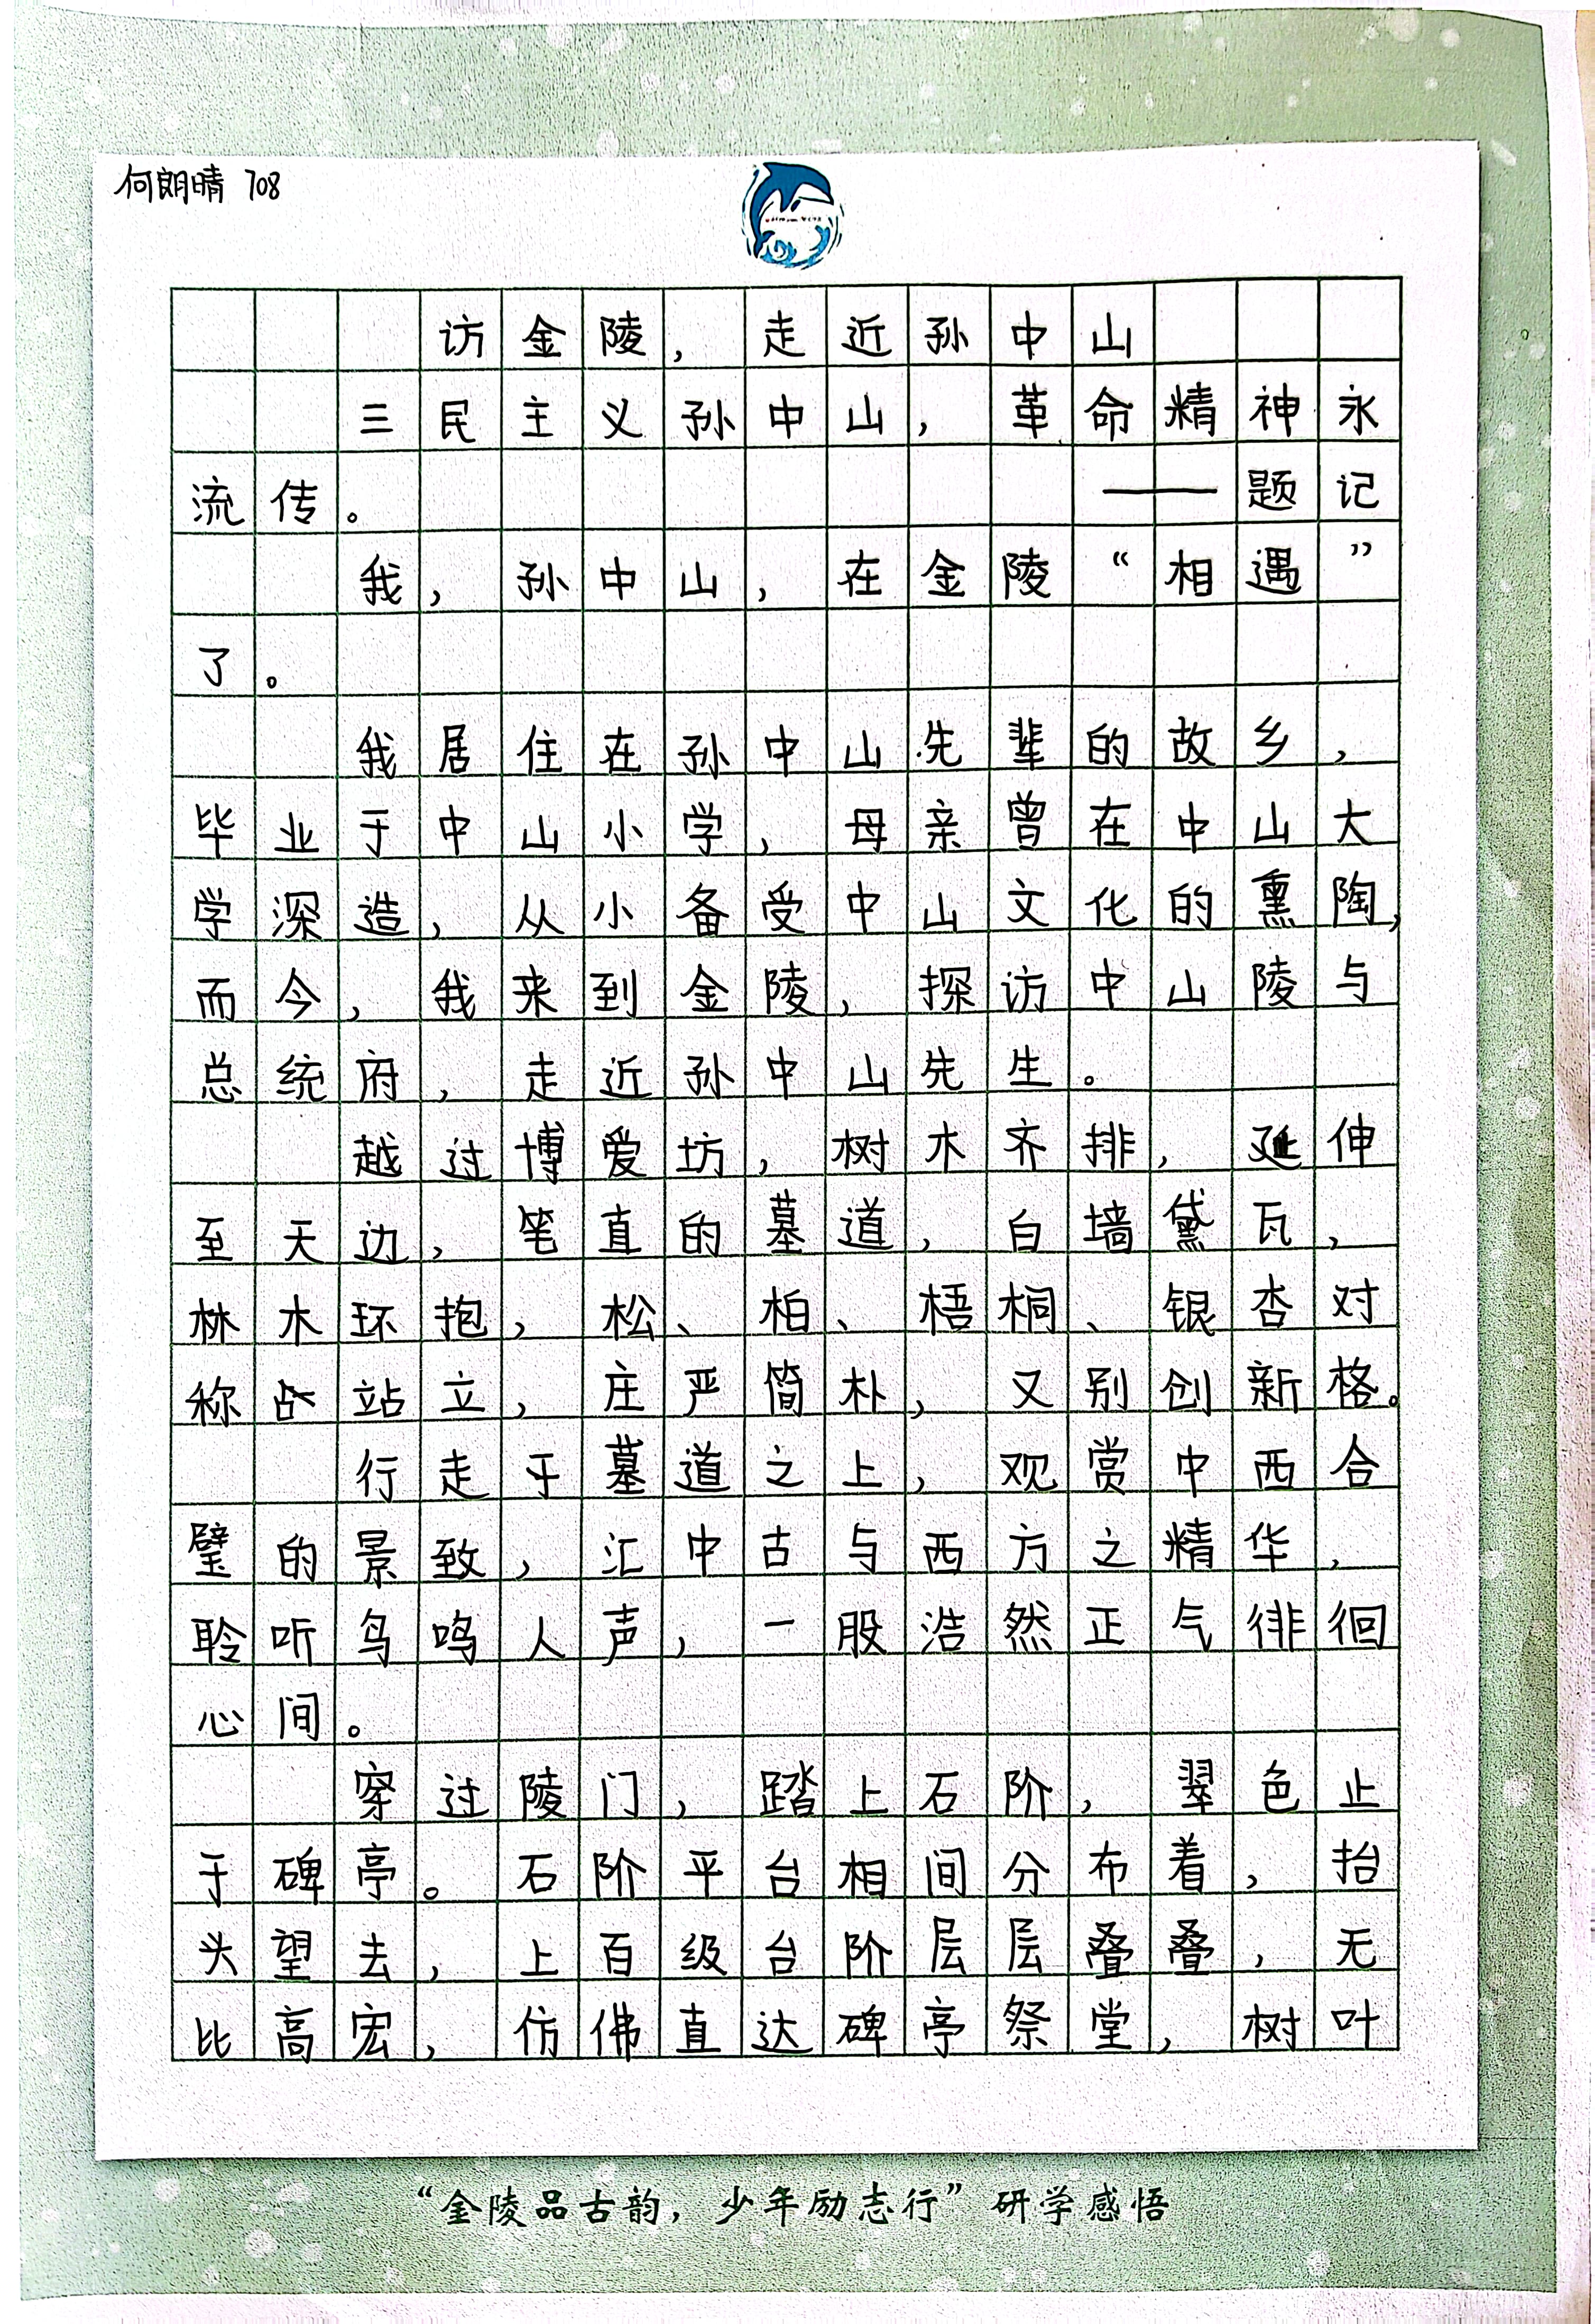 何朗晴 708
访金陵，走近孙中山
三民主义孙中山，革命精神永
流传。——题记
我，孙中山，在金陵“相遇”
了。
我居住在孙中山先辈的故乡，
毕业于中山小学，母亲曾在中山大
学深造，从小备受中山文化的熏陶，
而今，我来到金陵，探访中山陵与
总统府，走近孙中山先生。
越过博爱坊，树木齐排，延伸
至天边，笔直的墓道，白墙黛瓦，
林木环抱，松、柏、梧桐、银杏对
称站立，庄严简朴，又别创新格。
行走于墓道之上，观赏中西合
璧的景致，汇中古与西方之精华，
聆听鸟鸣人声，一股浩然正气徘徊
心间。
穿过陵门，踏上石阶，翠色止
于碑亭。石阶平台相间分布着，抬
头望去，上百级台阶层层叠叠，无
比高宏，仿佛直达碑亭祭堂，树叶
“金陵品古韵，少年励志行”研学感悟